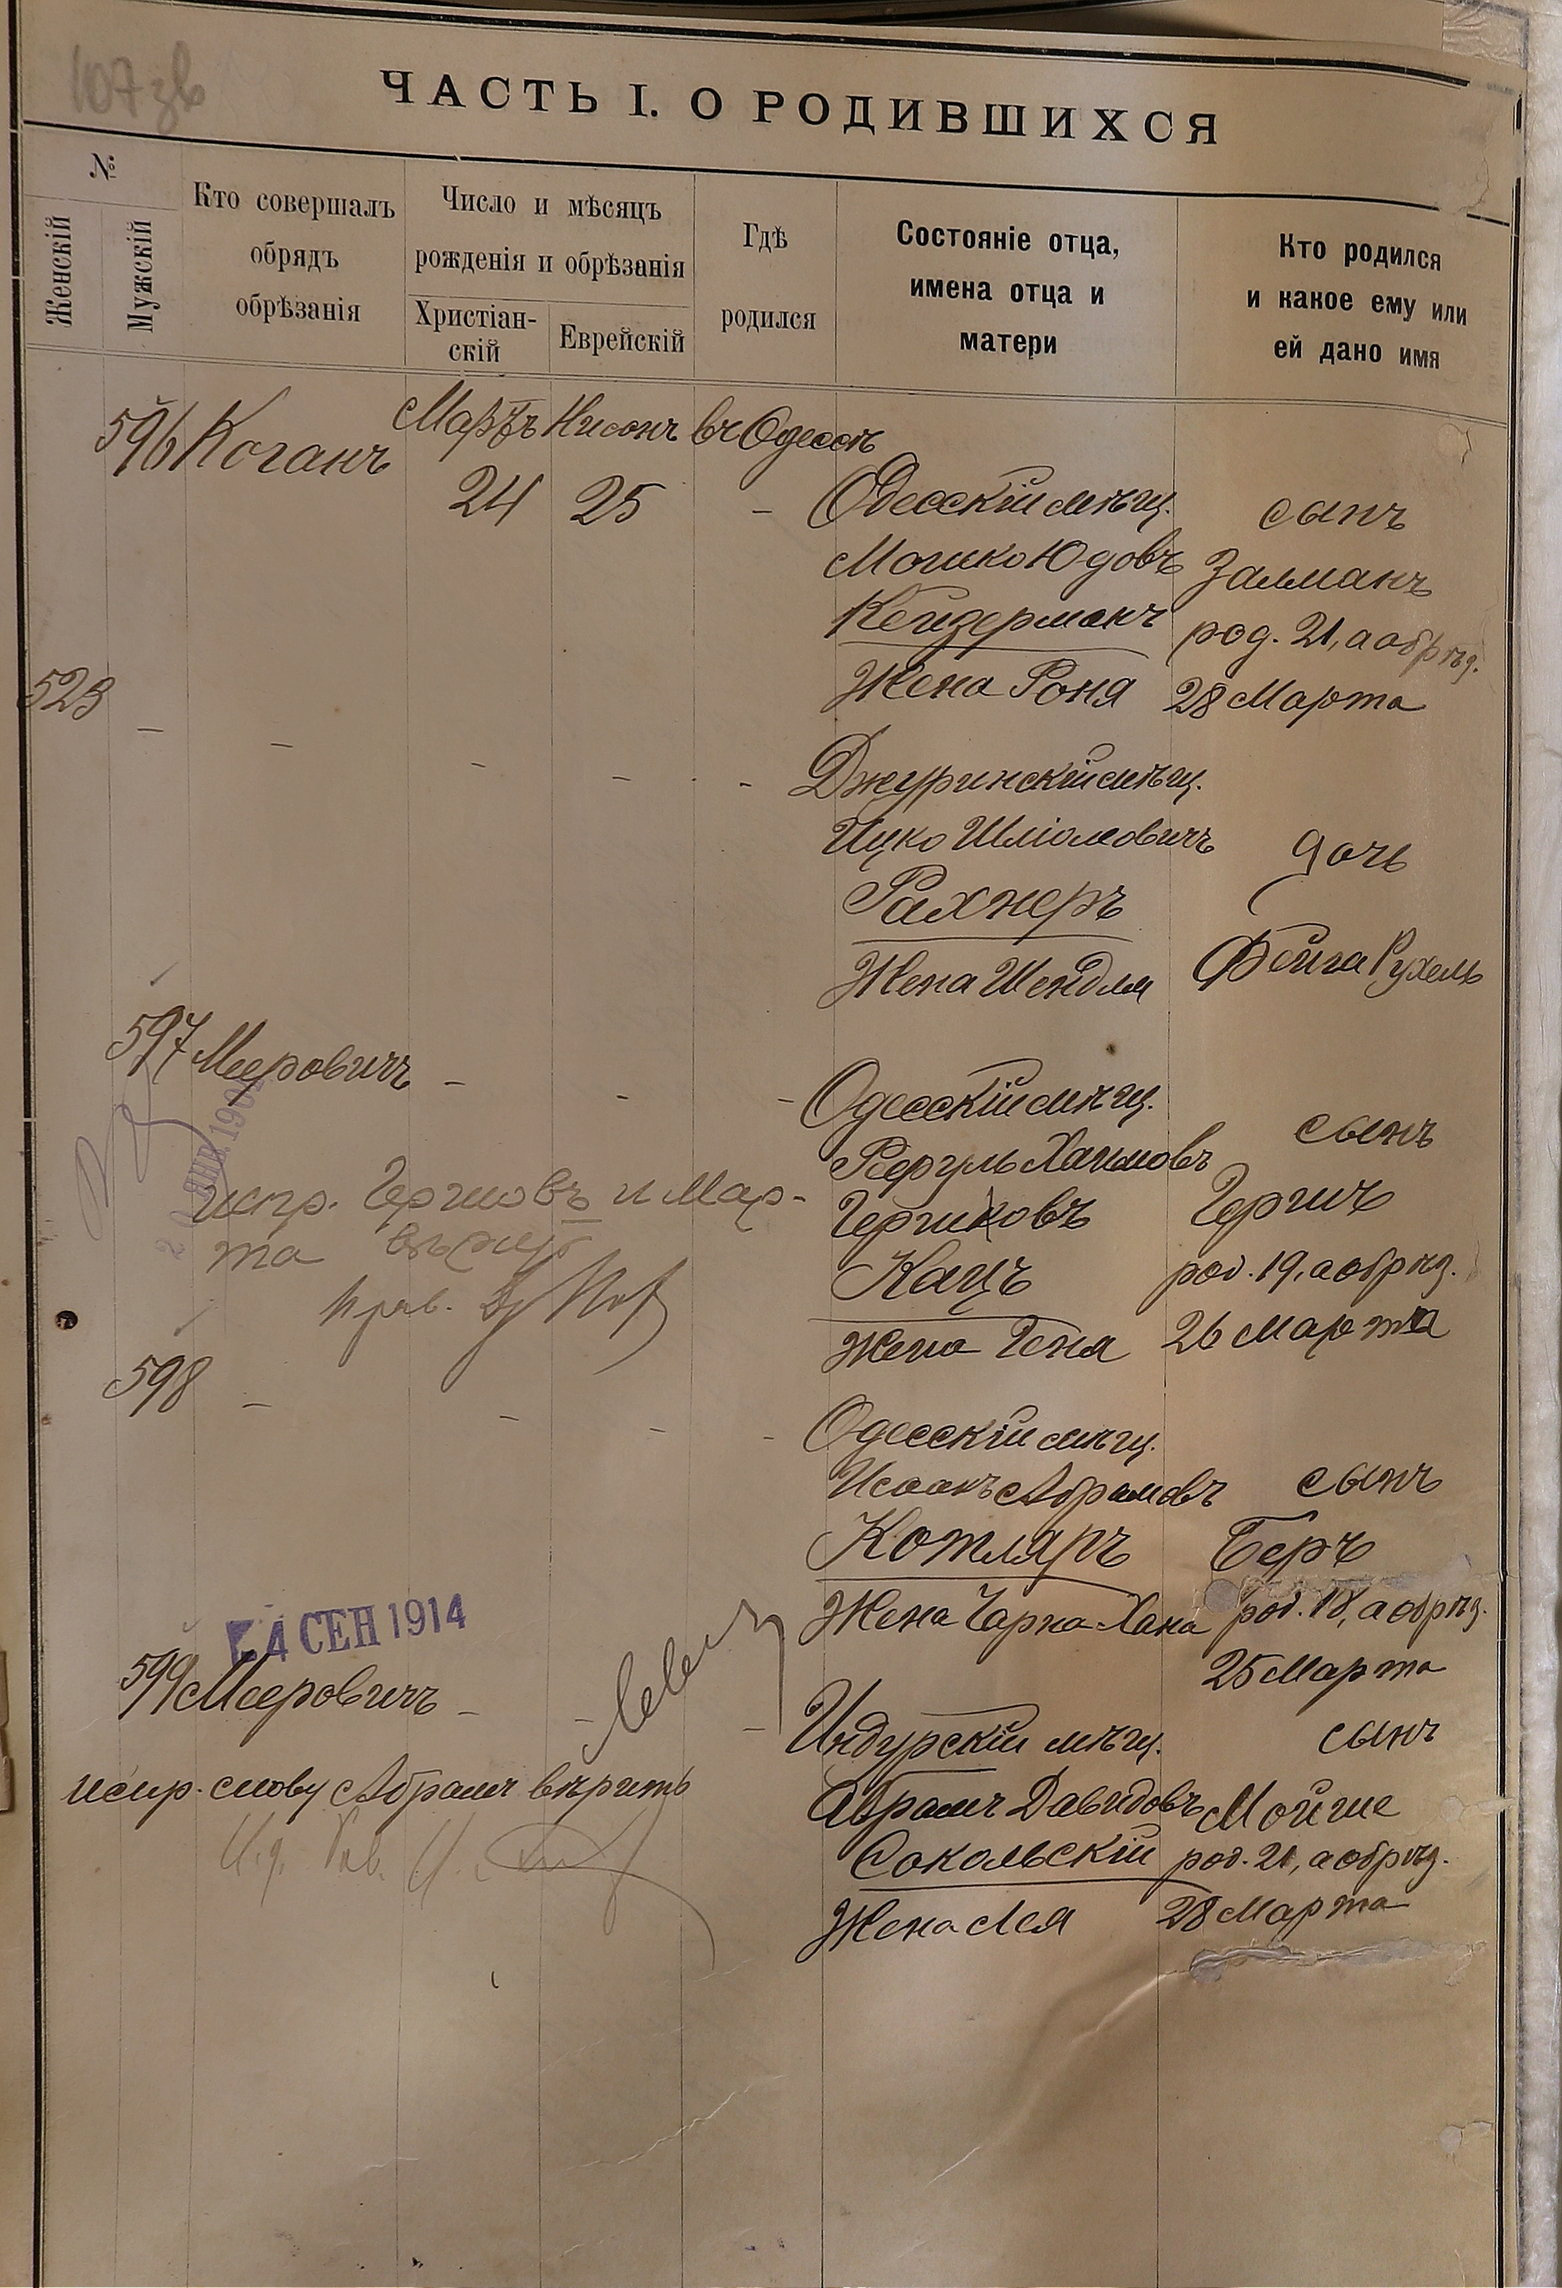 107 зв
ЧАСТЬ I. О РОДИВШИХСЯ
№
Женскій
Мужскій
Кто совершалъ
обрядъ
обрѣзанія
Число и мѣсяцъ
рожденія и обрѣзанія
Христіан-
скій
Еврейскій
Гдѣ
родился
Состояніе отца,
имена отца и
матери
Кто родился
и какое ему или
ей дано имя
596 Коганъ Мартъ Нисонъ въ Одессѣ
24 25 - Одесскій мѣщ. сынъ
Мошко Юдовъ Залманъ
Кейзерманъ род. 21, а обрѣз.
Жена Роня 28 Марта
523 - - - - -
Джуринскій мѣщ.
Ицко Шліомовичъ дочь
Рахнеръ
Жена Шендля Фейга Рухель
597 Мееровичъ - - -
Одесскій мѣщ. сынъ
Хаимовъ
Гершковъ Гершъ
Кацъ род. 19, а обрѣз.
Жена Геня 26 Марта
испр. Гершовъ и Мар-
та вѣрить
598 - - - -
Одесскій мѣщ.
Исаакъ Абрамовъ сынъ
Котляръ Беръ
Жена Чарна-Хана род. 18, а обрѣз.
25 Марта
4 СЕН 1914
599 Мееровичъ - - -
Индурскій мѣщ. сынъ
испр. слову Абрамъ вѣрить
Абрамъ Давидовъ Мойше
Сокольскій род. 21, а обрѣз.
Жена Лея 28 Марта